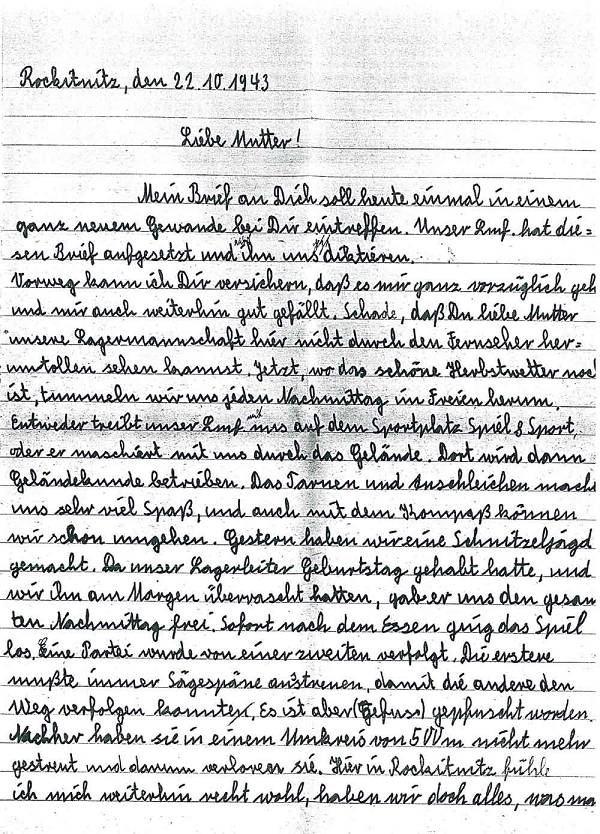 Rockitnitz, den 22.10.1943
Liebe Mutter!
Mein Brief an Dich soll heute einmal in einem
ganz neuem Gewande bei Dir eintreffen. Unser Lmf. hat die=
sen Brief aufgesetzt und ihn uns diktieren.
Vorweg kann ich Dir versichern, daß es mir ganz vorzüglich geh
und mir auch weiterhin gut gefällt. Schade, daß Du liebe Mutter
unsere Lagermannschaft hier nicht durch den Fernseher her=
umtollen sehen kannst. Jetzt, wo das schöne Herbstwetter noc
ist, tummeln wir uns jeden Nachmittag im Freien herum.
Entweder treibt unser Lmf mit uns auf dem Sportplatz Spiel & Sport,
oder er maschiert mit uns durch das Gelände. Dort wird dann
Geländekunde betrieben. Das Tarnen und Anschleichen mach
uns sehr viel Spaß, und auch mit dem Kompaß können
wir schon umgehen. Gestern haben wir eine Schnitzeljagd
gemacht. Da unser Lagerleiter Geburtstag gehabt hatte, und
wir ihn am Morgen überrascht hatten, gab er uns den gesam
ten Nachmittag frei. Sofort nach dem Essen ging das Spiel
los. Eine Partei wurde von einer zweiten verfolgt. Die erstere
mußte immer Sägespäne austreuen, damit die andere den
Weg verfolgen konnte. Es ist aber gepfuscht worden.
Nachher haben sie in einem Umkreis von 500 m nicht mehr
gestreut und darum verloren sie. Hier in Rockitnitz fühle
ich mich weiterhin recht wohl, haben wir doch alles, was ma